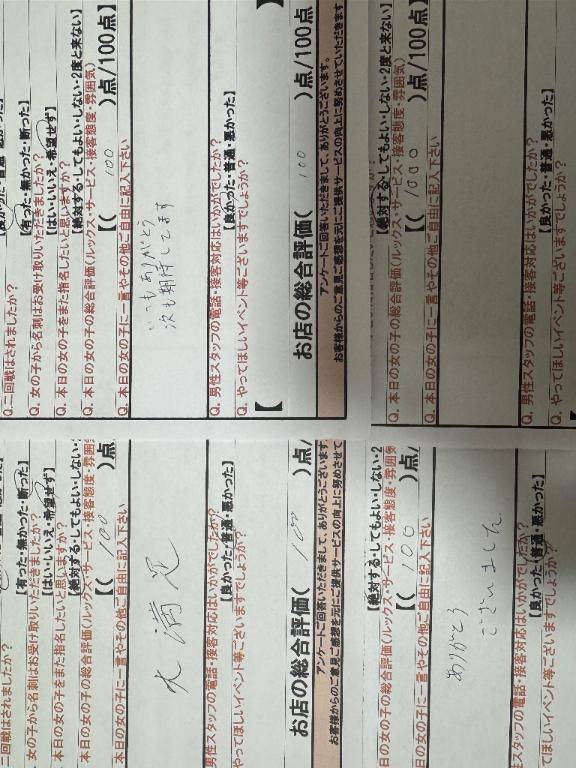 Q. 二回戦はされましたか？
【有った・無かった・断った】
Q. 女の子から名刺はお受け取りいただきましたか？
【はい・いいえ・希望せず】
Q. 本日の女の子をまた指名したいと思いますか？
【絶対する・してもよい・しない・2度と来ない】
Q. 本日の女の子の総合評価(ルックス・サービス・接客態度・雰囲気)
【( 100 )点/100点】
Q. 本日の女の子に一言やその他ご自由に記入下さい
いつもありがとう
次も期待してます
Q. 男性スタッフの電話・接客対応はいかがでしたか？
【良かった・普通・悪かった】
Q. やってほしいイベント等ございますでしょうか？
【 】
お店の総合評価( 100 )点/100点
アンケートご回答いただきまして、ありがとうございます。
お客様からのご意見ご感想を元にご提供サービスの向上に努めさせていただきます
【絶対する・してもよい・しない・2度と来ない】
Q. 本日の女の子の総合評価(ルックス・サービス・接客態度・雰囲気)
【( 1000 )点/100点】
Q. 本日の女の子に一言やその他ご自由に記入下さい
Q. 男性スタッフの電話・接客対応はいかがでしたか？
【良かった・普通・悪かった】
Q. やってほしいイベント等ございますでしょうか？
二回戦はされましたか？
【有った・無かった・断った】
女の子から名刺はお受け取りいただきましたか？
【はい・いいえ・希望せず】
本日の女の子をまた指名したいと思いますか？
【絶対する・してもよい・しない・
本日の女の子の総合評価(ルックス・サービス・接客態度・雰囲気
【( 100 )点
本日の女の子に一言やその他ご自由に記入下さい
大満足
男性スタッフの電話・接客対応はいかがでしたか？
【良かった・普通・悪かった】
やってほしいイベント等ございますでしょうか？
お店の総合評価( 100 )点/
アンケートご回答いただきまして、ありがとうございます。
お客様からのご意見ご感想を元にご提供サービスの向上に努めさせて
【絶対する・してもよい・しない・2
日の女の子の総合評価(ルックス・サービス・接客態度・雰囲気
【( 100 )点/
日の女の子に一言やその他ご自由に記入下さい
ありがとう
ございました
性スタッフの電話・接客対応はいかがでしたか？
【良かった・普通・悪かった】
てほしいイベント等ございますでしょうか？